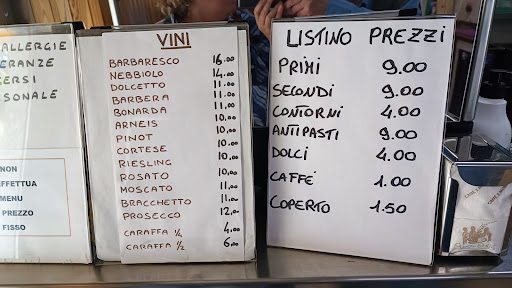 ALLERGIE
ERANZE
ERSI
SONALE
NON
EFFETTUA
MENU
PREZZO
FISSO
VINI
BARBARESCO 16,00
NEBBIOLO 14,00
DOLCETTO 11,00
BARBERA 11,00
BONARDA 11,00
ARNEIS 10,00
PINOT 10,00
CORTESE 10,00
RIESLING 10,00
ROSATO 10,00
MOSCATO 11,00
BRACCHETTO 11,00
PROSECCO 12,00
CARAFFA ¼ 4,00
CARAFFA ½ 6,00
LISTINO PREZZI
PRIMI 9.00
SECONDI 9.00
CONTORNI 4.00
ANTIPASTI 9.00
DOLCI 4.00
CAFFE' 1.00
COPERTO 1.50